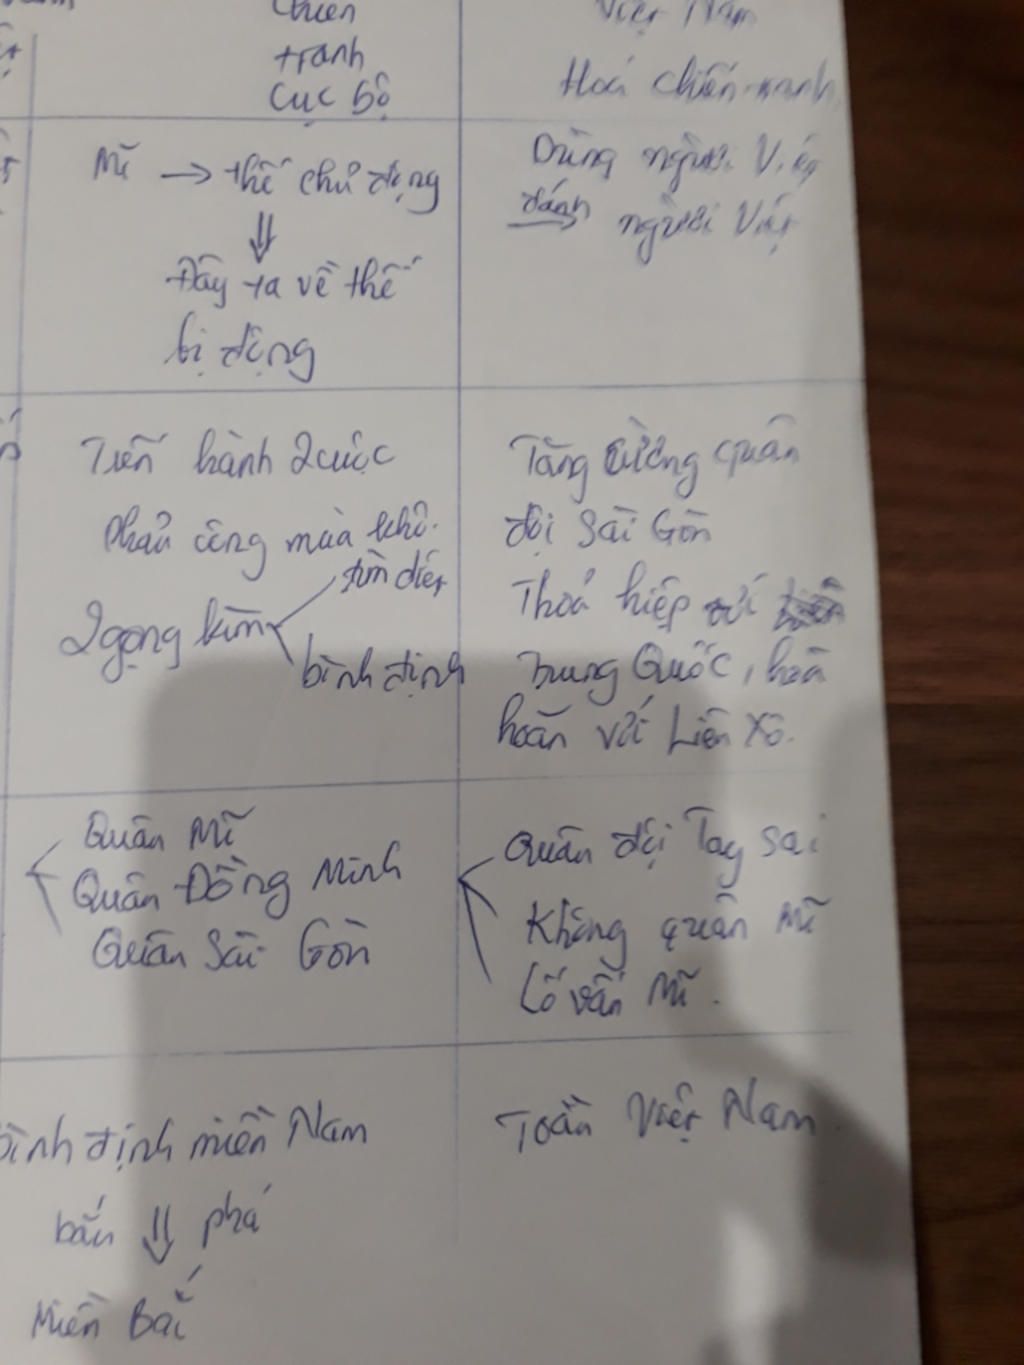 Chiến
tranh
Cục bộ
Việt Nam
Hoá chiến tranh
Mĩ → thế chủ động
⇓
Đẩy ta về thế
bị động
Dùng người Việt
đánh người Việt
Tiến hành 2 cuộc
Phản công mùa khô.
2 gọng kìm
tìm diệt
bình định
Tăng cường quân
đội Sài Gòn
Thoả hiệp với
Trung Quốc, hoà
hoãn với Liên Xô.
Quân Mĩ
Quân Đồng Minh
Quân Sài Gòn
Quân đội Tay sai
Không quân Mĩ
Cố vấn Mĩ.
bình định miền Nam
bắn ⇓ phá
Miền Bắc
Toàn Việt Nam.